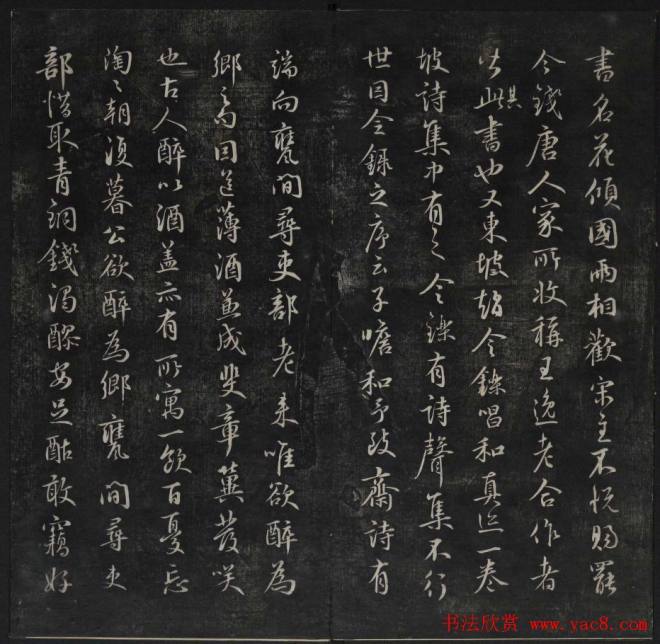 書名花傾國兩相歡宋主不悅賜罷
今錢唐人家所收稱王逸老合作者
皆此書也又東坡趙令鑠唱和真跡一卷
坡詩集中有之令鑠有詩聲集不行
世因全錄之序云子瞻和予致齋詩有
端向甕間尋吏部老來唯欲醉為
鄉之句因送薄酒兼成斐章冀發笑
也古人醉以酒蓋亦有所寓一飲百憂忘
陶陶朝復暮公欲醉為鄉甕間尋吏
部惜取青銅錢濁醪安足酤敢竊好
书法欣赏 www.yac8.com